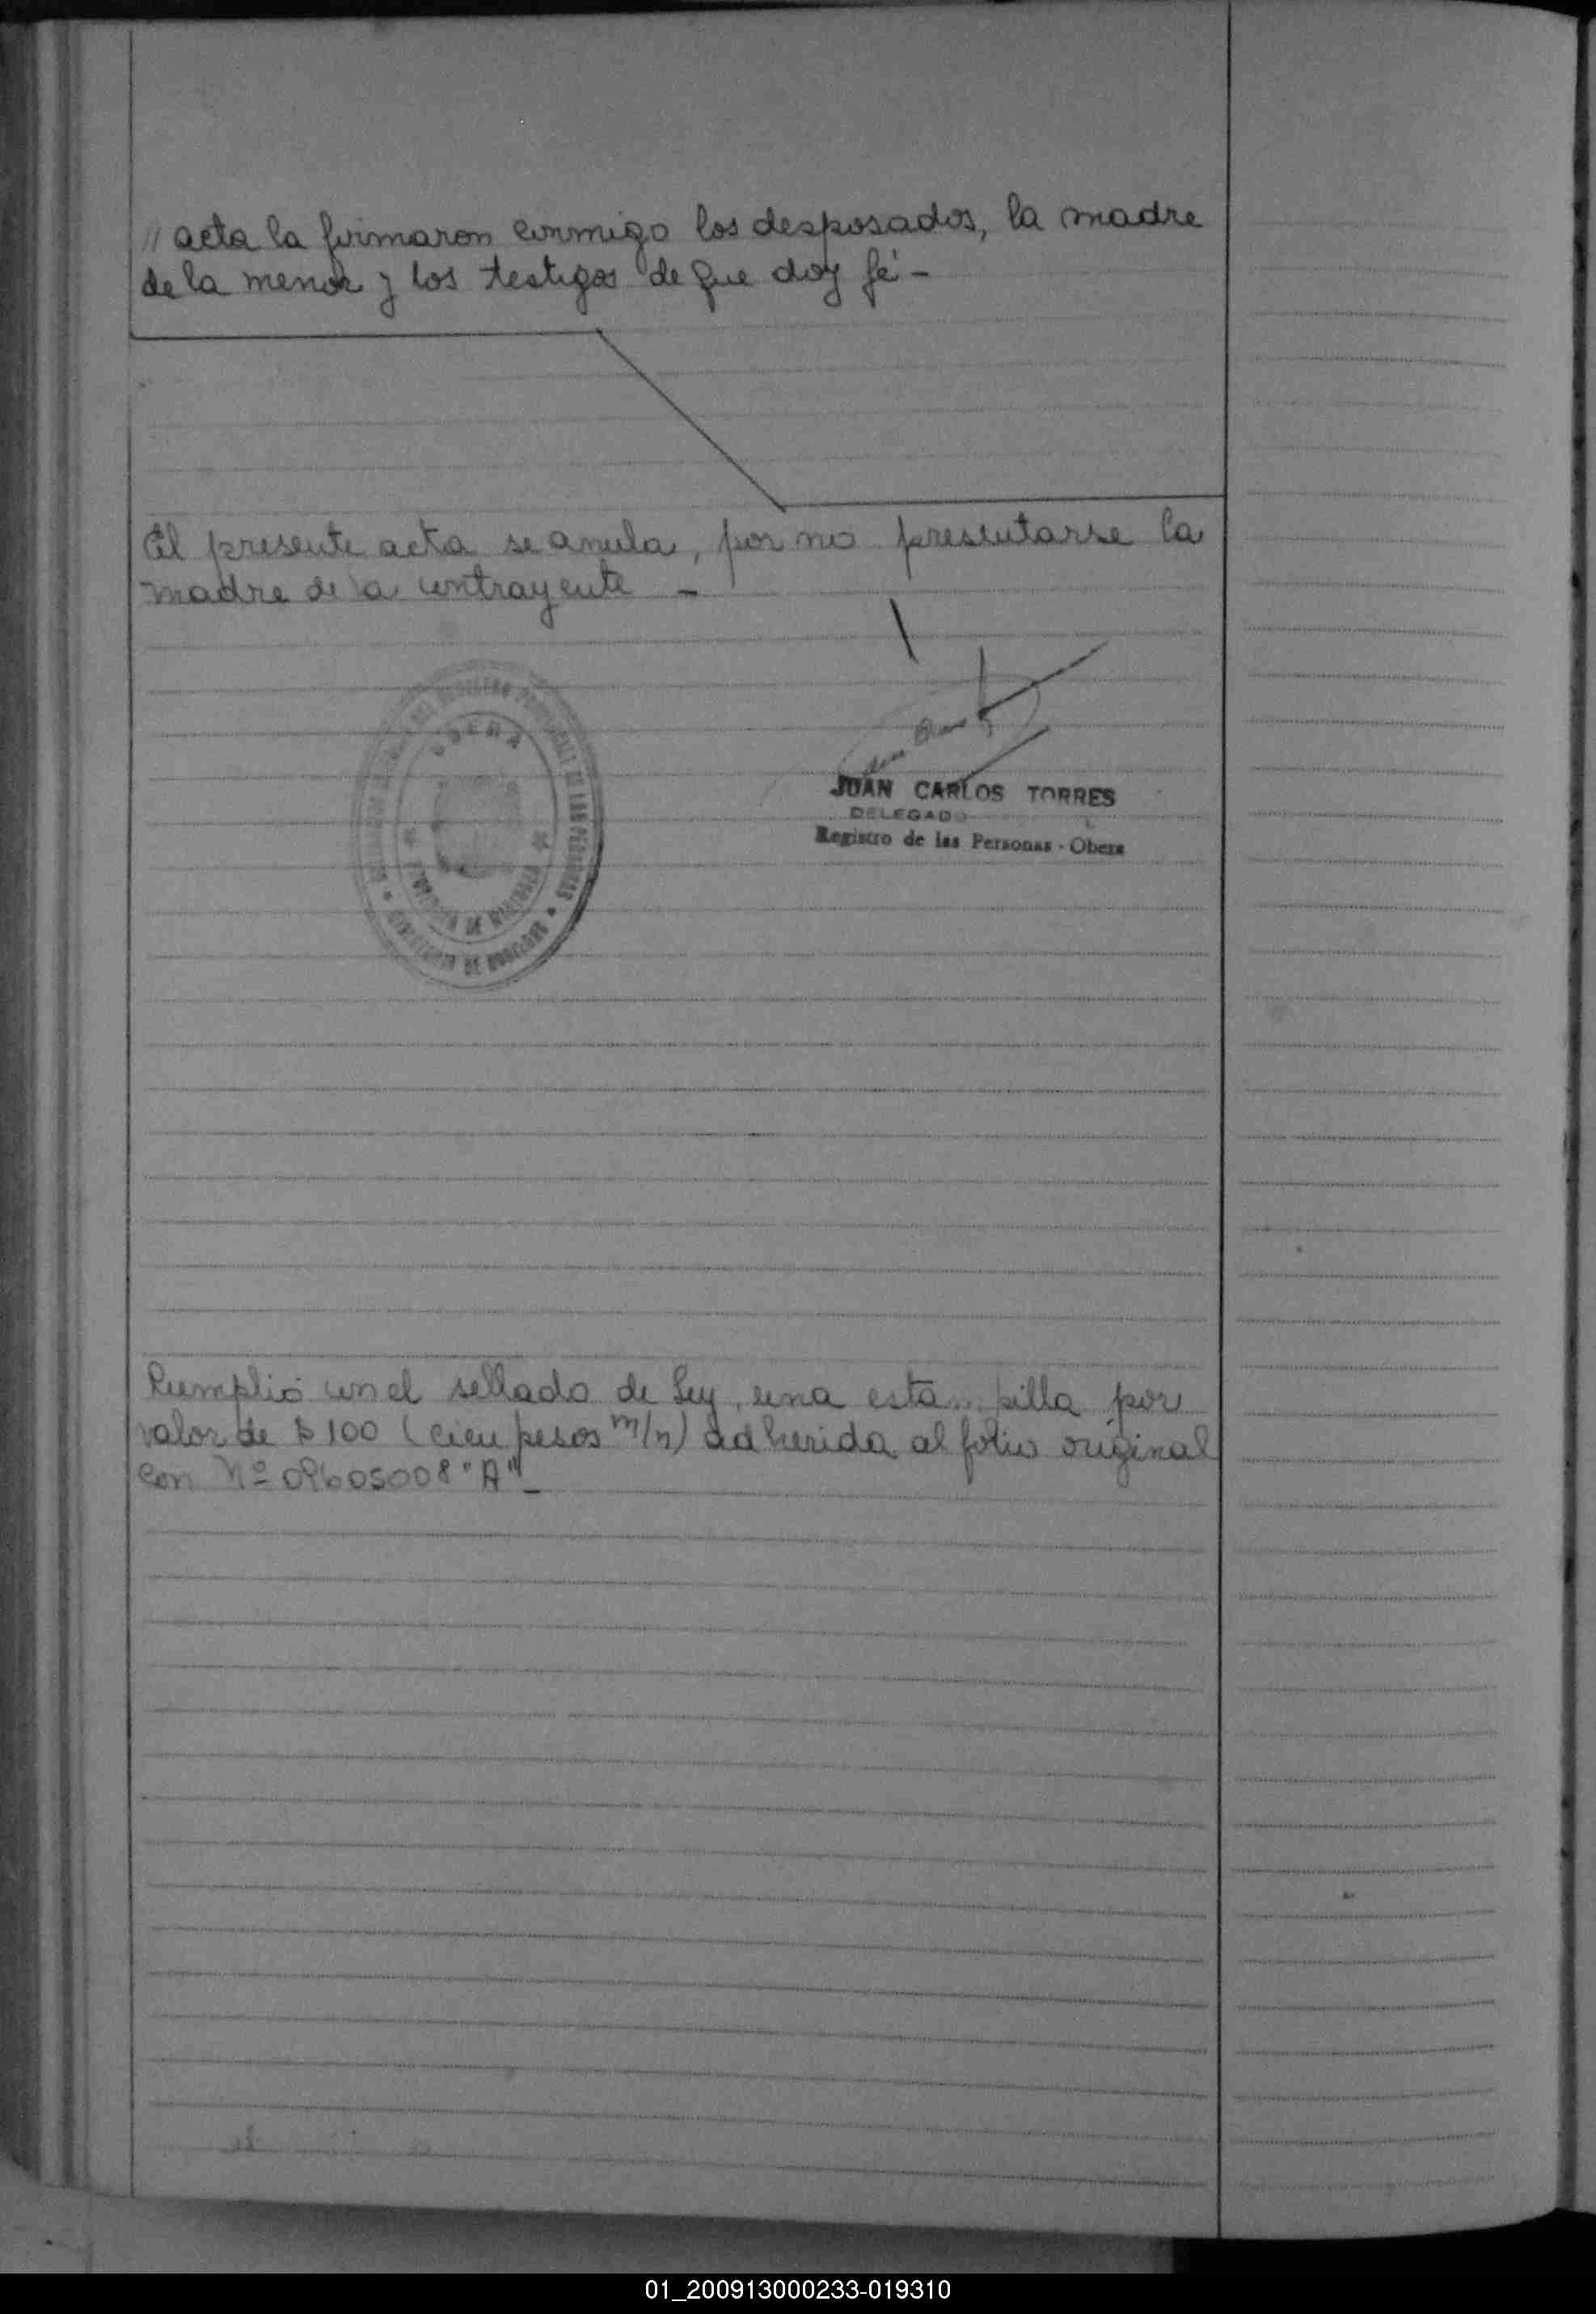 // acta la firmaron conmigo los desposados, la madre
de la menor y los testigos de que doy fé -
El presente acta se anula, por no presentarse la
madre de la contrayente -
OBERA
PROVINCIA DE MISIONES
JUAN CARLOS TORRES
DELEGADO
Registro de las Personas - Obera
Cumplió con el sellado de Ley, una estampilla por
valor de $ 100 (cien pesos m/n) adherida al folio original
con Nº 09605008 "A" -
01_200913000233-019310